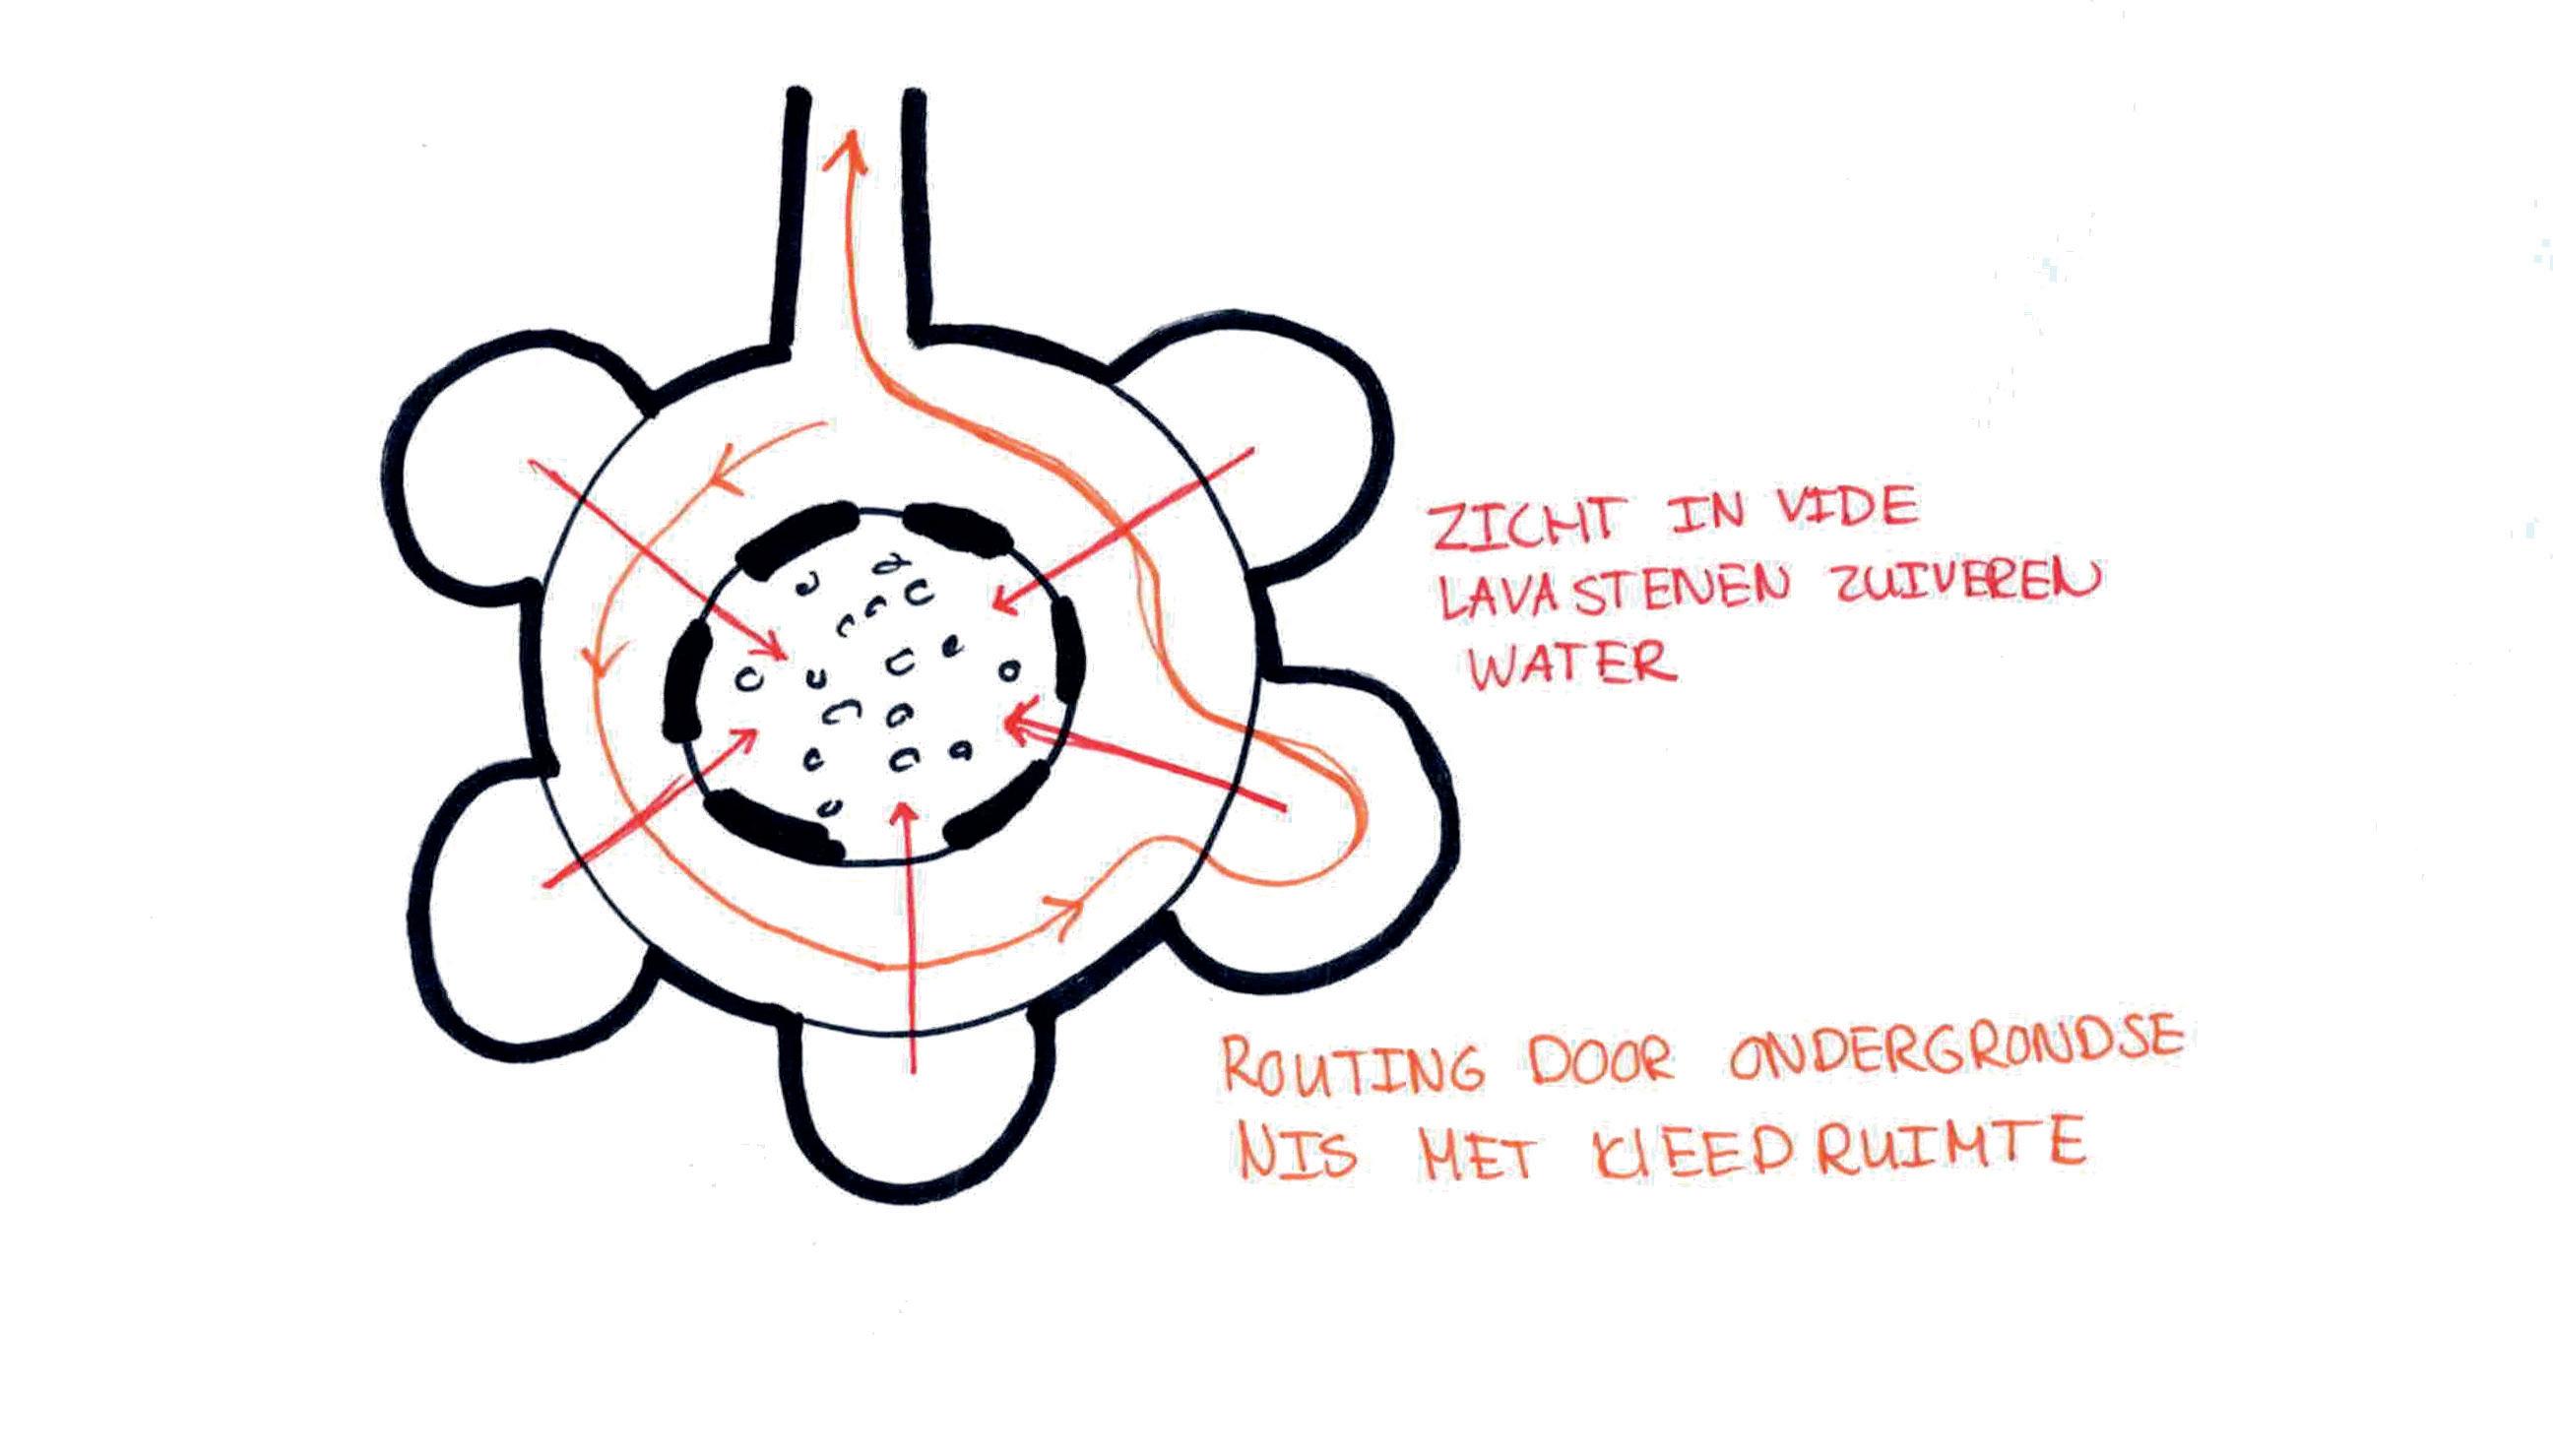 ZICHT IN VIDE
LAVASTENEN ZUIVEREN
WATER
ROUTING DOOR ONDERGRONDSE
NIS MET KLEEDRUIMTE